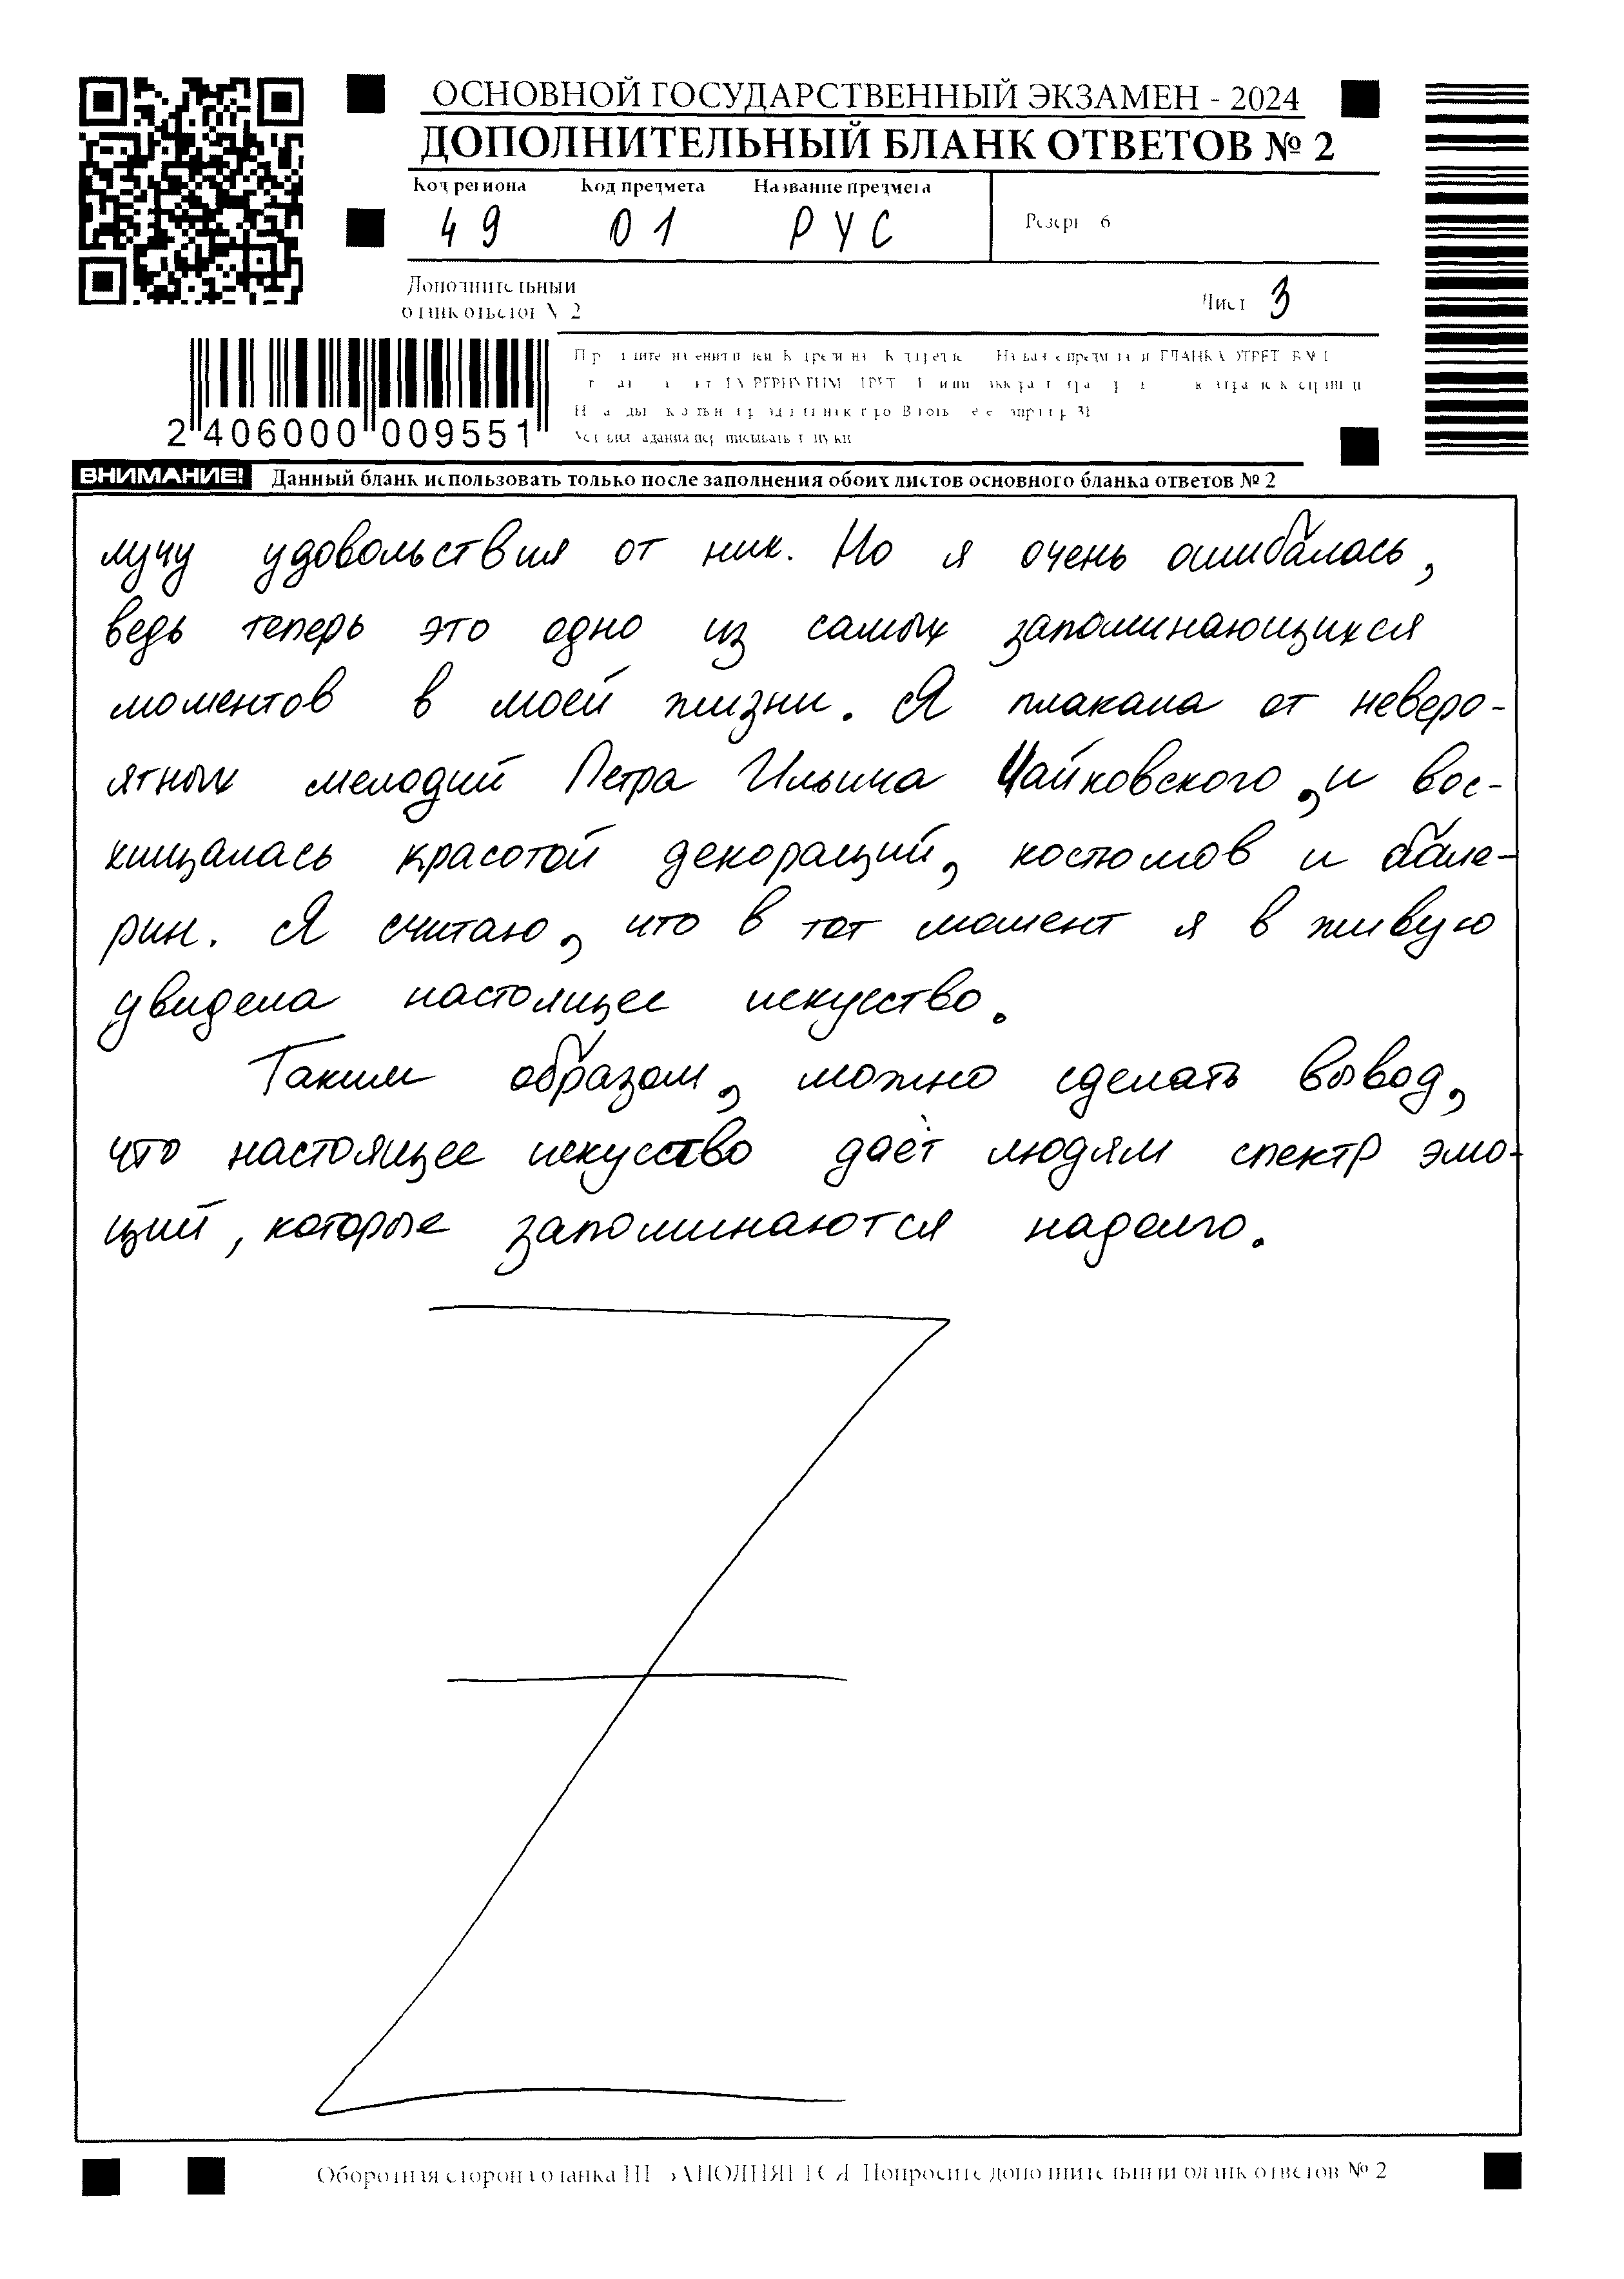 ОСНОВНОЙ ГОСУДАРСТВЕННЫЙ ЭКЗАМЕН - 2024
ДОПОЛНИТЕЛЬНЫЙ БЛАНК ОТВЕТОВ № 2
Код региона Код предмета Название предмета
49 01 РУС
Резерв 6
Дополнительный
бланк ответов № 2
Лист 3
2 406000 009551
ВНИМАНИЕ! Данный бланк использовать только после заполнения обоих листов основного бланка ответов № 2
лучу удовольствия от них. Но я очень ошибалась,
ведь теперь это одно из самых запоминающихся
моментов в моей жизни. Я плакала от неверо-
ятных мелодий Петра Ильича Чайковского, и вос-
хищалась красотой декораций, костюмов и бале-
рин. Я считаю, что в тот момент я в живую
увидела настоящее искуство.
Таким образом, можно сделать вывод,
что настоящее искусство даёт людям спектр эмо-
ций, которые запоминаются надолго.
Оборотная сторона бланка НЕ ЗАПОЛНЯЕТСЯ Попросите дополнительный бланк ответов № 2